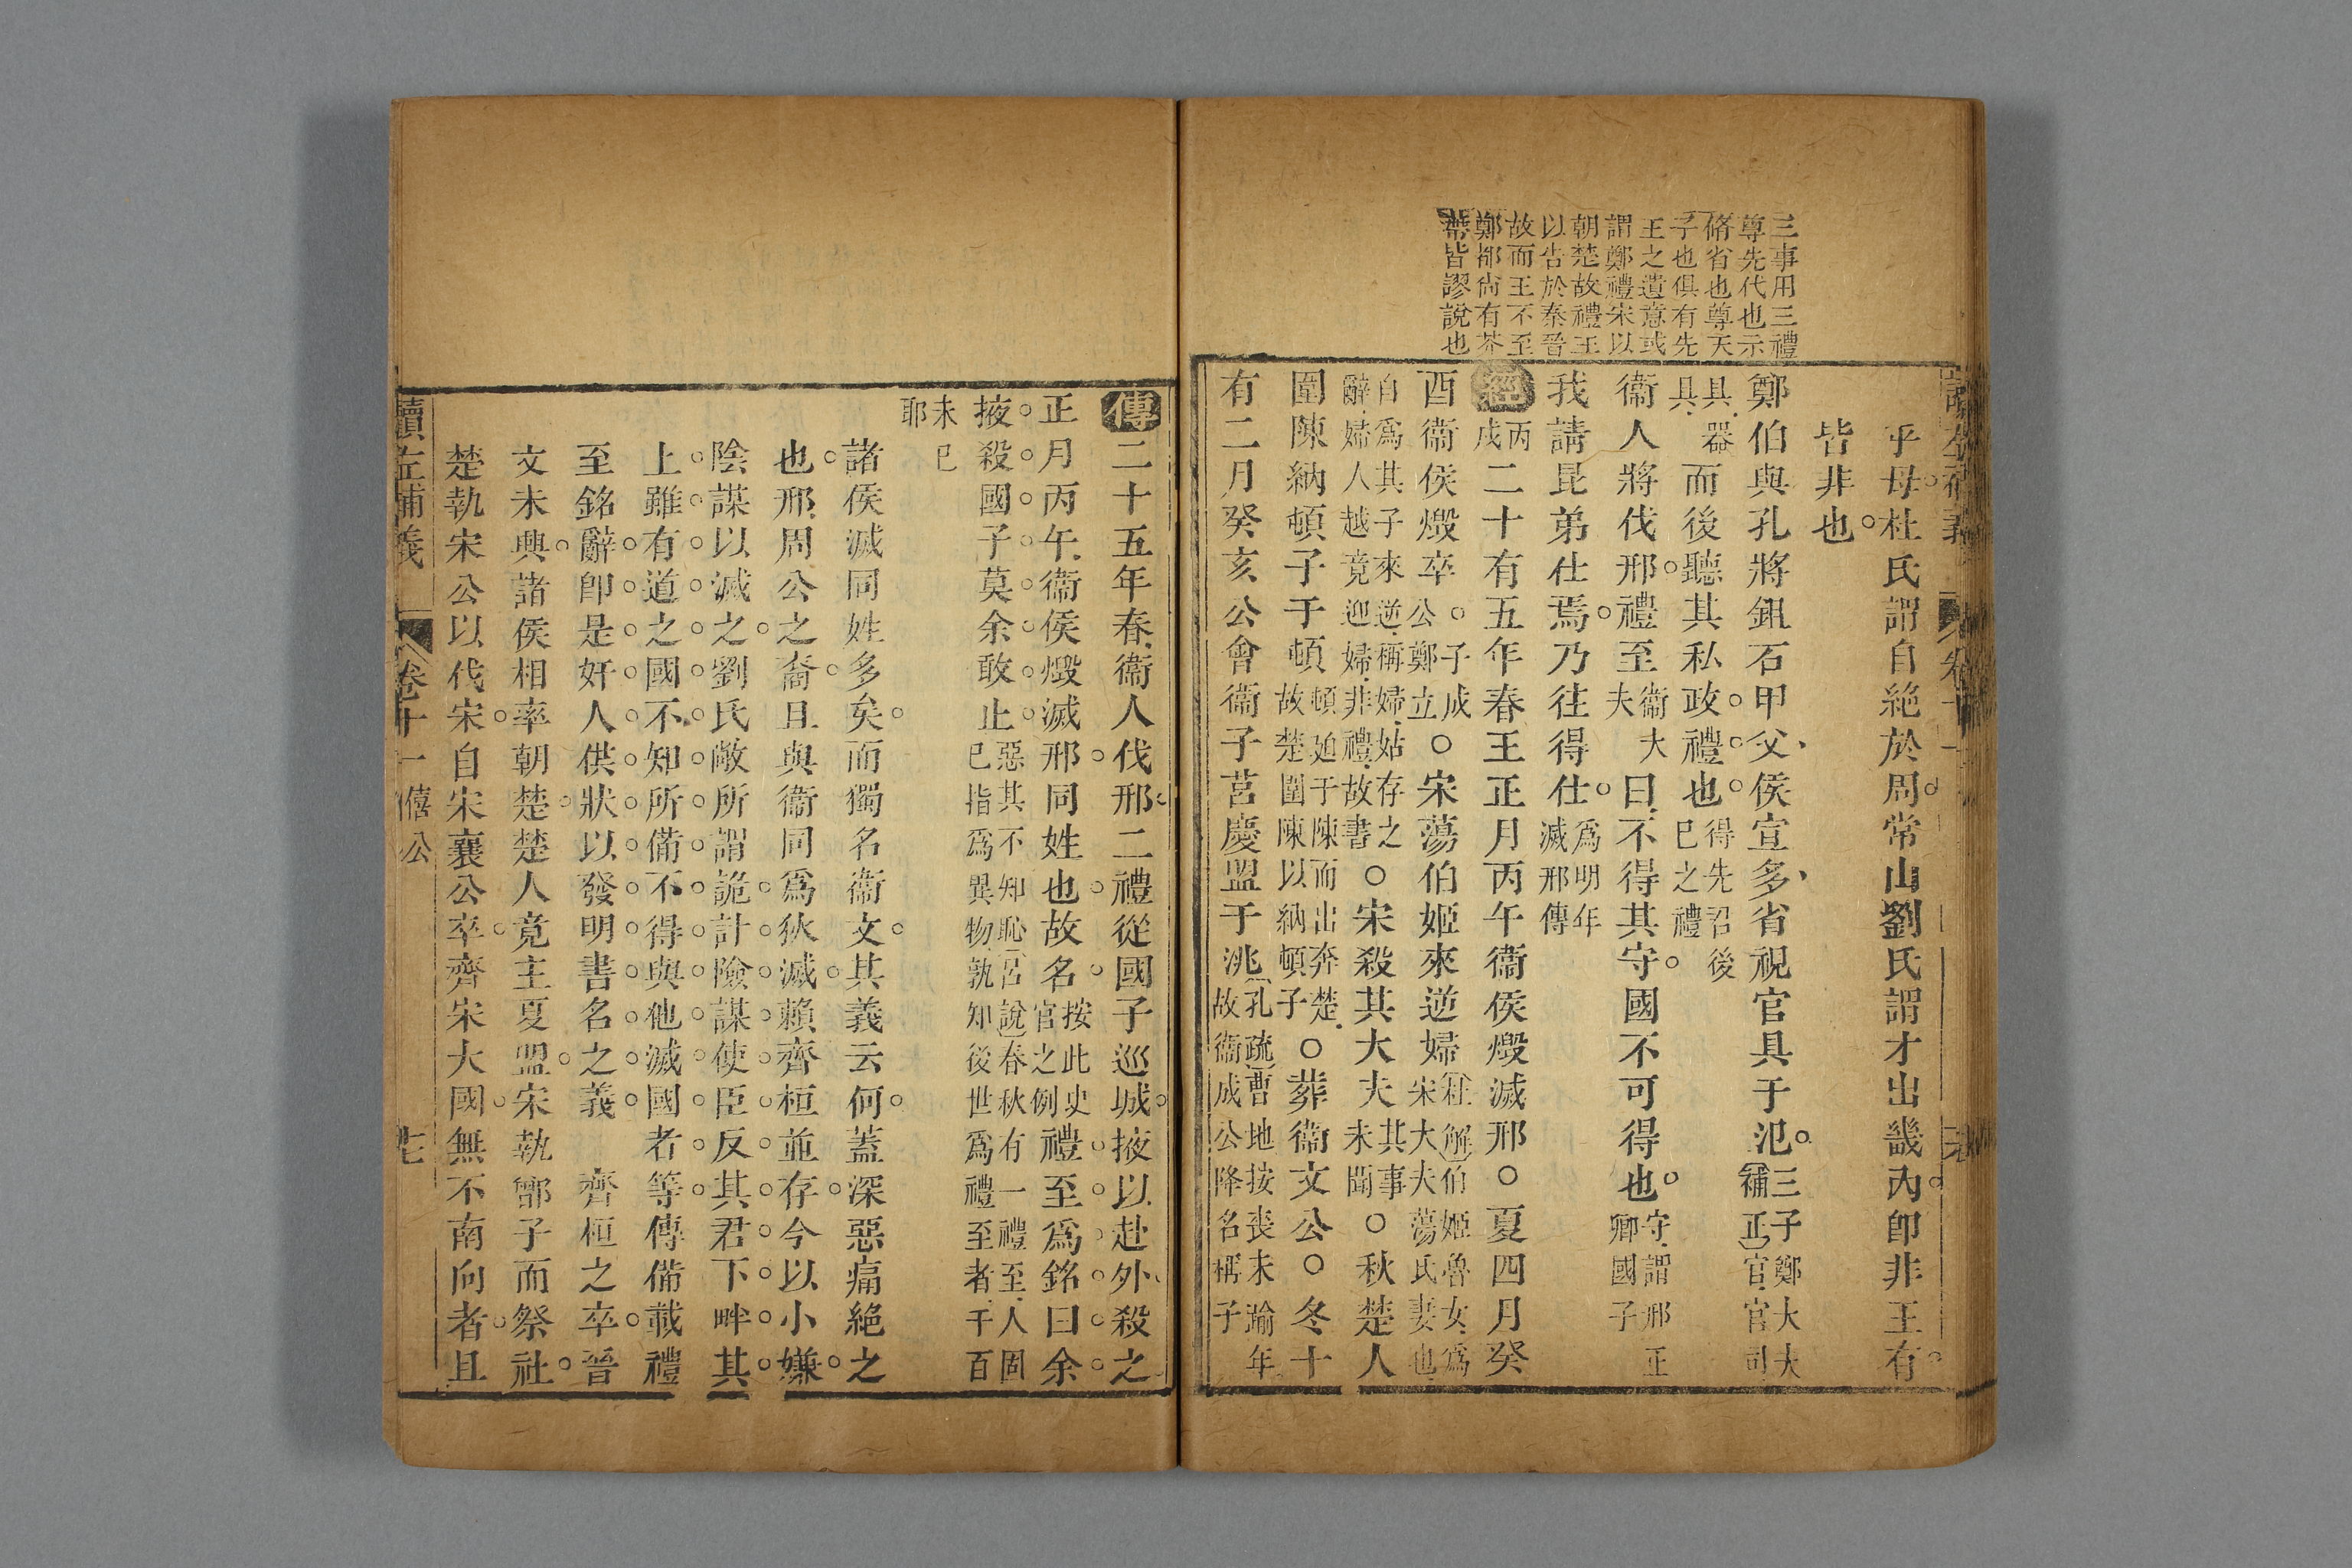 三事用三禮
尊先代也示
脩省也尊天
子也俱有先
王之遺意或
謂鄭禮宋以
朝楚故禮王
以告於秦晉
故而王不至
鄭鄙尚有芥
蔕皆謬說也
乎母杜氏謂自絶於周常山劉氏謂才出畿內卽非王有
皆非也
鄭伯與孔將鉏石甲父侯宣多省視官具于氾三子鄭大大補正官官司
具器具而後聽其私政禮也得先召後己之禮
衞人將伐邢禮至衞大夫曰不得其守國不可得也守謂邢正卿國子
我請昆弟仕焉乃往得仕爲明年滅邢傳
經丙戌二十有五年春王正月丙午衞侯燬滅邢○夏四月癸
酉衞侯燬卒公子成鄭立○宋蕩伯姬來逆婦杜解伯姬魯女爲宋大夫蕩氏妻也
自爲其子來逆稱婦姑存之辭婦人越竟迎婦非禮故書○宋殺其大夫其事未聞○秋楚人
圍陳納頓子于頓頓廹于陳而出奔楚故楚圍陳以納頓子○葬衞文公○冬十
有二月癸亥公會衞子莒慶盟于洮孔疏曹地按喪未踰年故衞成公降名稱子
傳二十五年春衞人伐邢二禮從國子巡城掖以赴外殺之
正月丙午衞侯燬滅邢同姓也故名按此史官之例禮至爲銘曰余
掖殺國子莫余敢止惡其不知恥呂說春秋有一禮至人固已指爲異物孰知後世爲禮至者千百
未已耶
諸侯滅同姓多矣而獨名衞文其義云何蓋深惡痛絶之
也邢周公之裔且與衞同爲狄滅賴齊桓並存今以小嫌
陰謀以滅之劉氏敞所謂詭計險謀使臣反其君下畔其
上雖有道之國不知所備不得與他滅國者等傳備載禮
至銘辭卽是奸人供狀以發明書名之義　齊桓之卒晉
文未興諸侯相率朝楚楚人竟主夏盟宋執鄫子而祭社
楚執宋公以伐宋自宋襄公卒齊宋大國無不南向者且
讀左補義　卷十一僖公　七